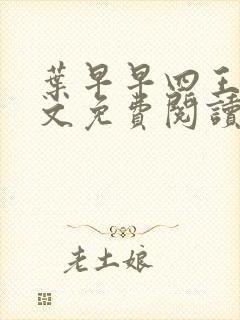 葉早早四王
文免費閱讀
老土娘